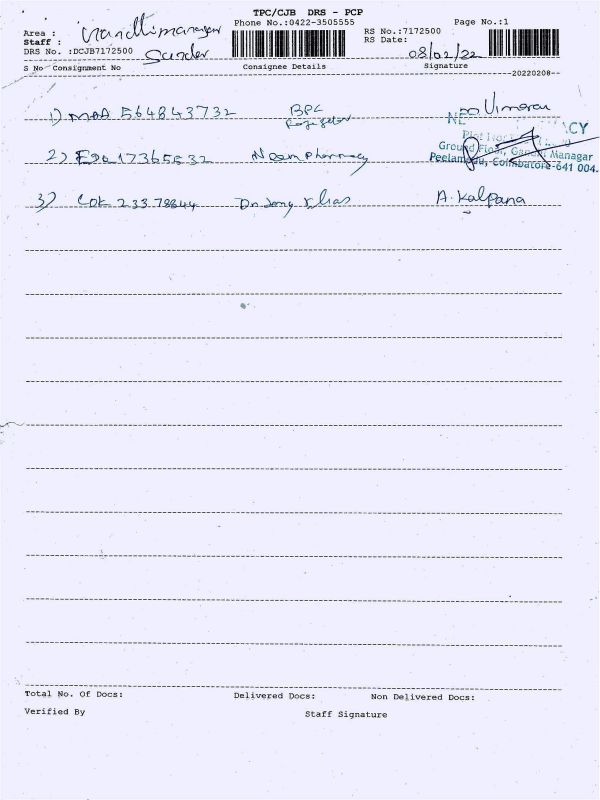 TPC/CJB DRS - PCP
Phone No.:0422-3505555
Page No.:1
Area :
Staff : Sunder
DRS No. :DCJB7172500
RS No.:7172500
RS Date: 08/02/22
S No Consignment No Consignee Details Signature
20220208
1) MAA 564843732 BPC
2) 17365632 Neem Pharmacy
Ground Floor, Gandhi Managar
Peelamedu, Coimbatore-641 004.
3) COK 233 78844 A. Kalpana
Total No. Of Docs: Delivered Docs: Non Delivered Docs:
Verified By Staff Signature